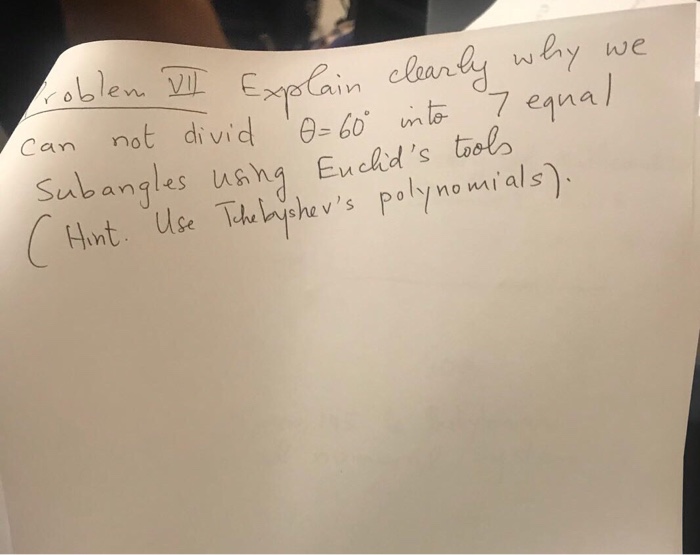 Problem VII Explain clearly why we
can not divid θ=60° into 7 equal
Subangles using Euclid's tools
(Hint. Use Tchebyshev's polynomials).